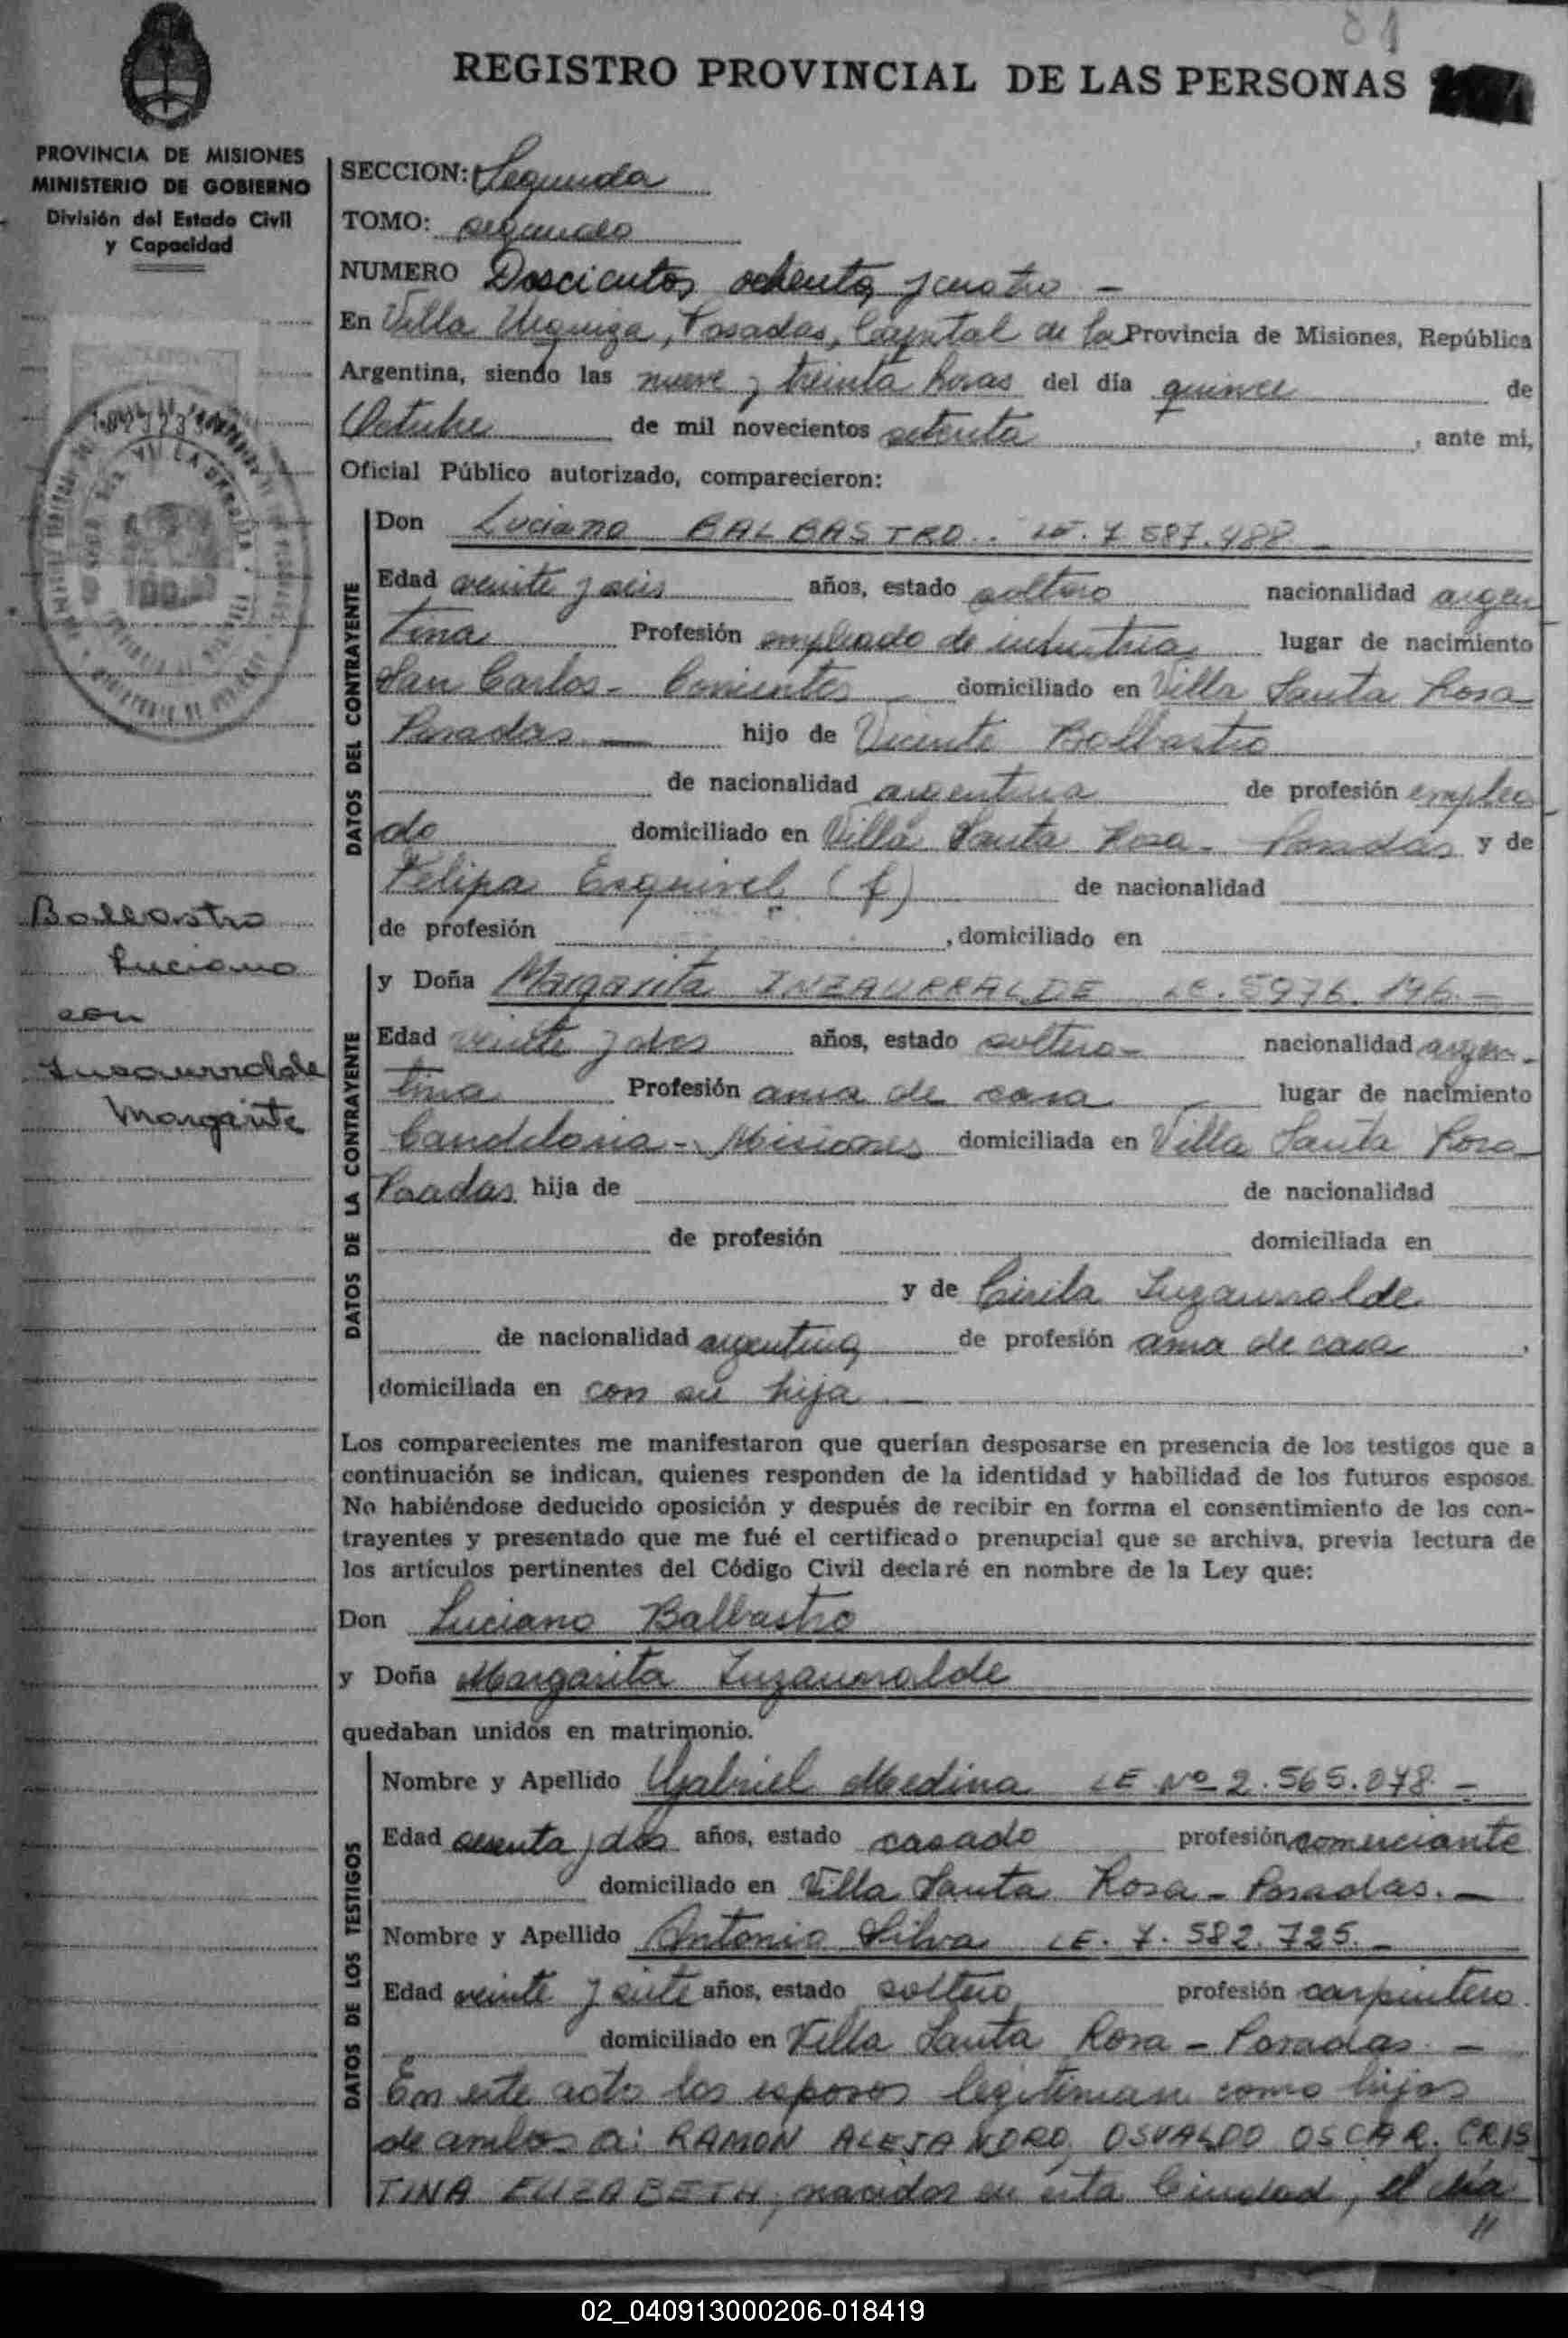 81
REGISTRO PROVINCIAL DE LAS PERSONAS
PROVINCIA DE MISIONES
MINISTERIO DE GOBIERNO
División del Estado Civil
y Capacidad
SECCION: Segunda
TOMO: segundo
NUMERO Doscientos ochenta y cuatro -
En Villa Urquiza, Posadas, Capital de la Provincia de Misiones, República
Argentina, siendo las nueve y treinta horas del día quince de
Octubre de mil novecientos setenta, ante mi,
Oficial Público autorizado, comparecieron:
DATOS DEL CONTRAYENTE
Don Luciano BALBASTRO.. LE. 7.587.488 -
Edad veinte y seis años, estado soltero nacionalidad argen
tina Profesión empleado de industria lugar de nacimiento
San Carlos - Corrientes - domiciliado en Villa Santa Rosa
Posadas - hijo de Vicente Balbastro
de nacionalidad argentina de profesión emplea
do domiciliado en Villa Santa Rosa - Posadas y de
Felipa Esquivel (f) de nacionalidad
de profesión , domiciliado en
Balbastro
Luciano
con
Insaurralde
Margarita
DATOS DE LA CONTRAYENTE
y Doña Margarita INZAURRALDE LC. 5976.196. -
Edad veinte y dos años, estado soltera - nacionalidad argen-
tina Profesión ama de casa - lugar de nacimiento
Candelaria - Misiones domiciliada en Villa Santa Rosa
Posadas hija de de nacionalidad
de profesión domiciliada en
y de Cirila Inzaurralde
de nacionalidad argentina de profesión ama de casa ,
domiciliada en con su hija -
Los comparecientes me manifestaron que querían desposarse en presencia de los testigos que a
continuación se indican, quienes responden de la identidad y habilidad de los futuros esposos.
No habiéndose deducido oposición y después de recibir en forma el consentimiento de los con-
trayentes y presentado que me fué el certificado prenupcial que se archiva, previa lectura de
los artículos pertinentes del Código Civil declaré en nombre de la Ley que:
Don Luciano Balbastro
y Doña Margarita Inzaurralde
quedaban unidos en matrimonio.
DATOS DE LOS TESTIGOS
Nombre y Apellido Gabriel Medina LE Nº 2.565.078 -
Edad sesenta y dos años, estado casado profesión comerciante
domiciliado en Villa Santa Rosa - Posadas. -
Nombre y Apellido Antonio Silva LE. 7.582.725. -
Edad veinte y siete años, estado soltero profesión carpintero.
domiciliado en Villa Santa Rosa - Posadas. -
En este acto los esposos legitiman como hijos
de ambos a: RAMON ALEJANDRO, OSVALDO OSCAR, CRIS
TINA ELIZABETH, nacidos en ésta Ciudad, el día
//
02_040913000206-018419